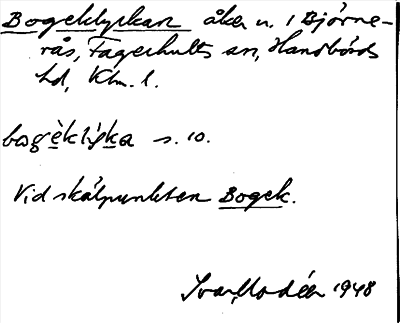 Bogeklyckan åker n. i Björne-
rås, Fagerhults sn, Handbörds
hd, Klm. l.
bogèklýka s. 10.
Vid skålpunkten Bogek.
Ivar Modéer 1948